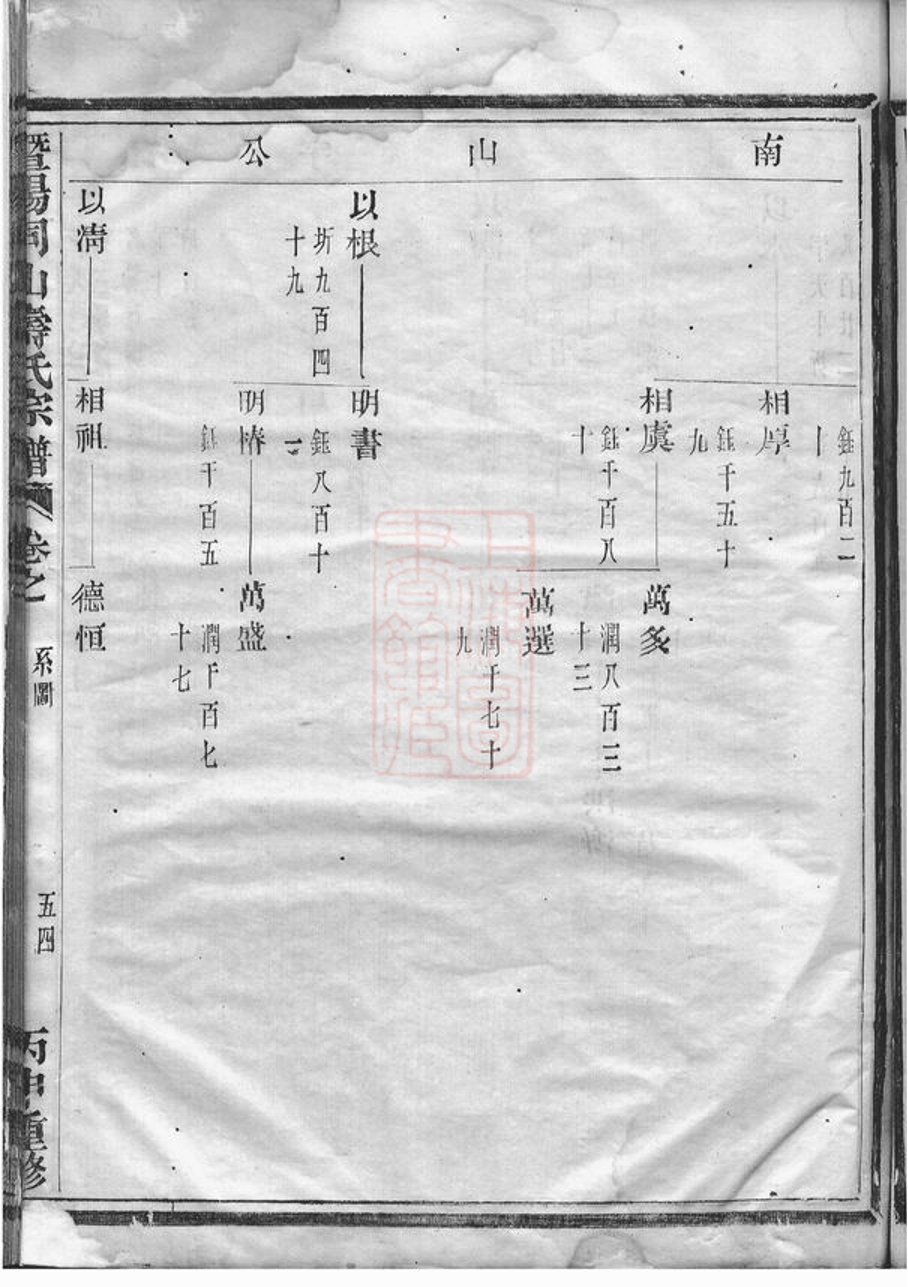 南山公
鈺九百二
十
相厚
鈺千五十
九
相虞
鈺千百八
十
萬多
潤八百三
十三
萬選
潤千七十
九
以根
圻九百四
十九
明書
鈺八百十
二
明椿
鈺千百五
萬盛
潤千百七
十七
以清
相祖
德恒
暨陽同山壽氏宗譜
卷之
系圖
五四
丙申重修
上海圖
書館藏